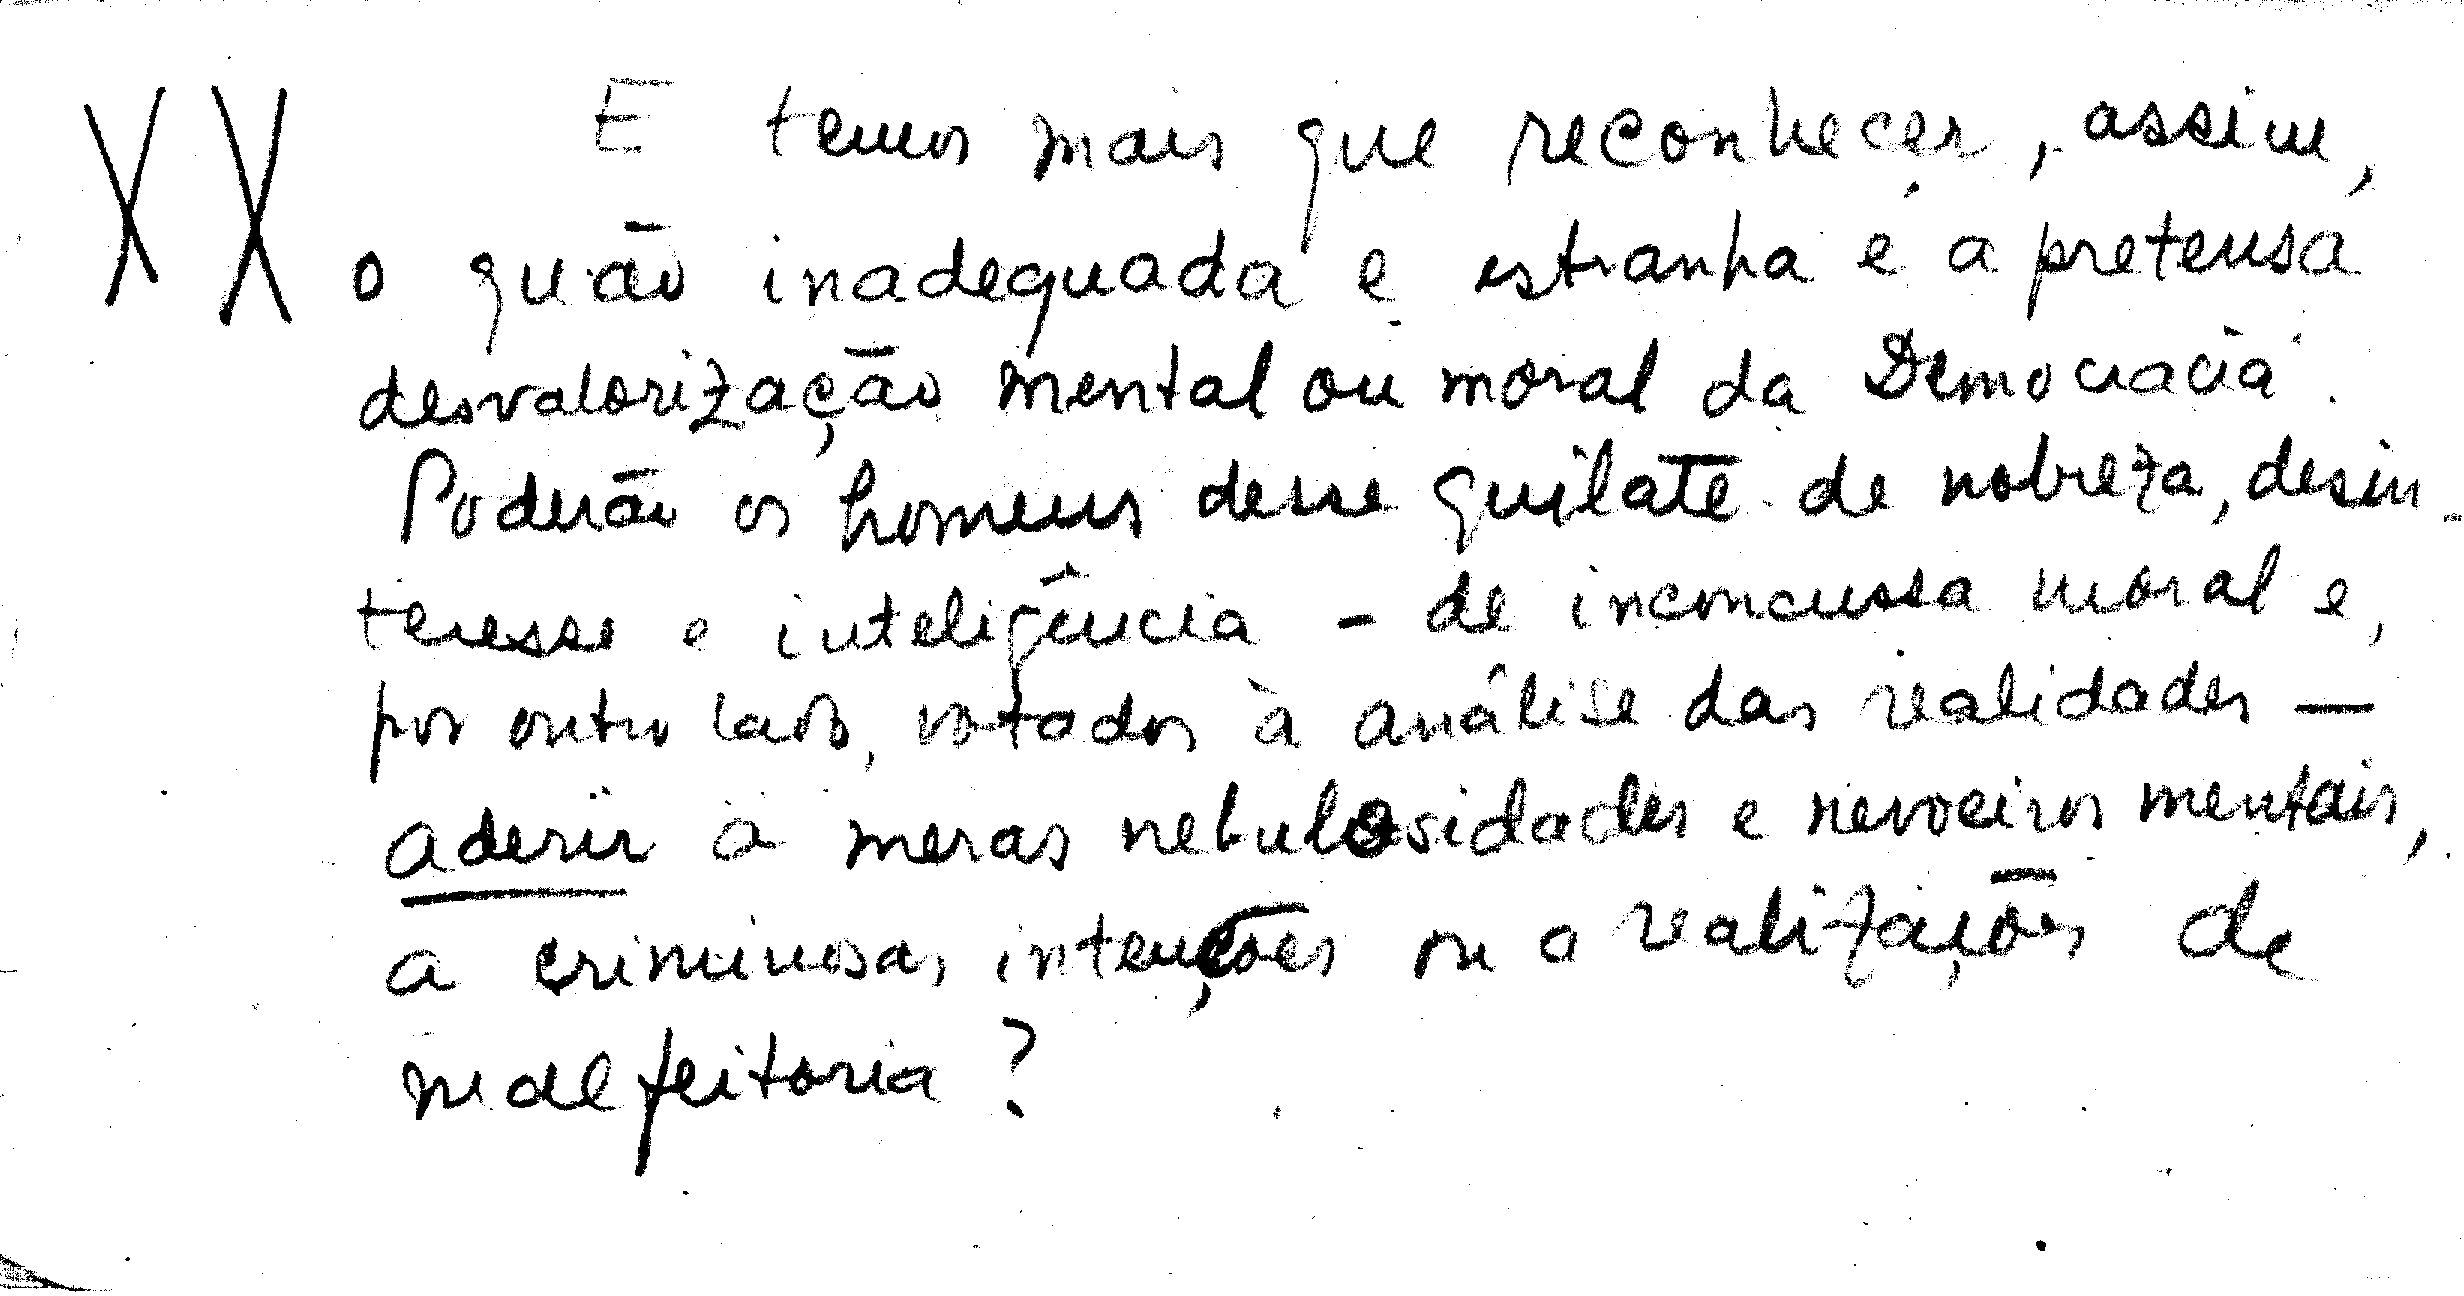 XX E temos mais que reconhecer, assim,
o quão inadequada e estranha é a pretensa
desvalorização mental ou moral da Democracia.
Poderão os homens desse quilate de nobreza, desin-
teresse e inteligência - de inconcussa moral e,
por outro lado, votados à análise das realidades —
aderir a meras nebulosidades e nevoeiros mentais,
a criminosas intenções ou a realizações de
malfeitoria?